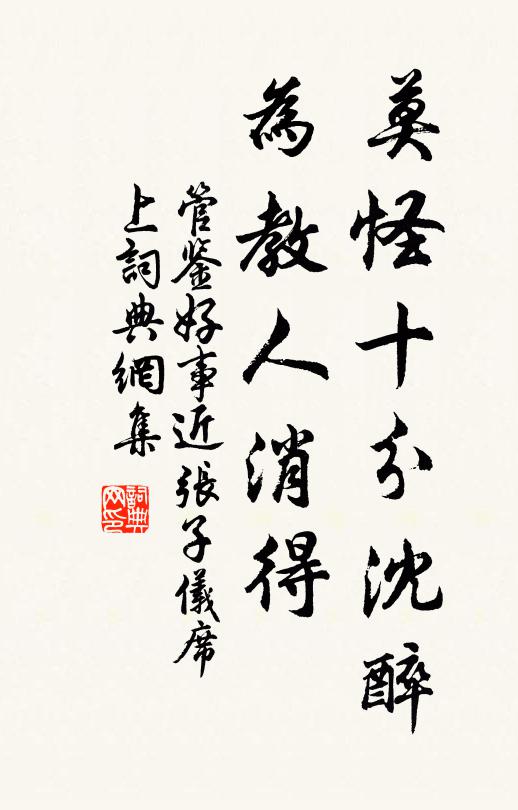 莫怪十分沈醉
為教人消得
管鉴好事近張子儀席
上詞典網集
詞典
网印